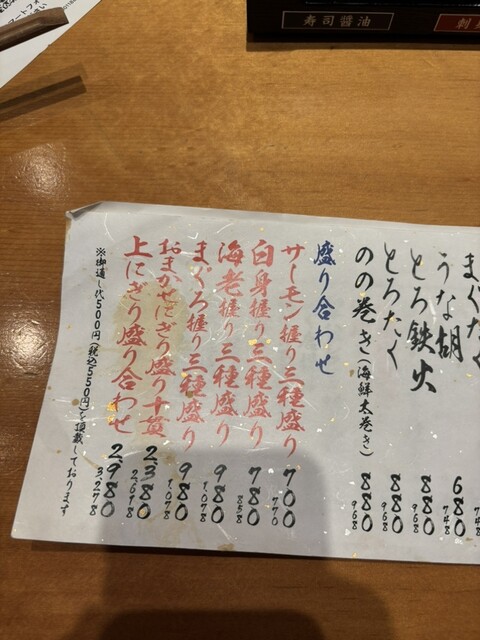 寿司醤油
刺
まぐたく
748
うな胡 680
748
とろ鉄火 880
968
とろたく 880
968
のの巻き(海鮮太巻き) 880
968
盛り合わせ
サーモン握り三種盛り 700
770
白身握り三種盛り 780
858
海老握り三種盛り 980
1,078
まぐろ握り三種盛り 980
1,078
おまかせにぎり盛り十貫 2,380
2,618
上にぎり盛り合わせ 2,980
3,278
※御通し代500円(税込550円)を頂戴しております